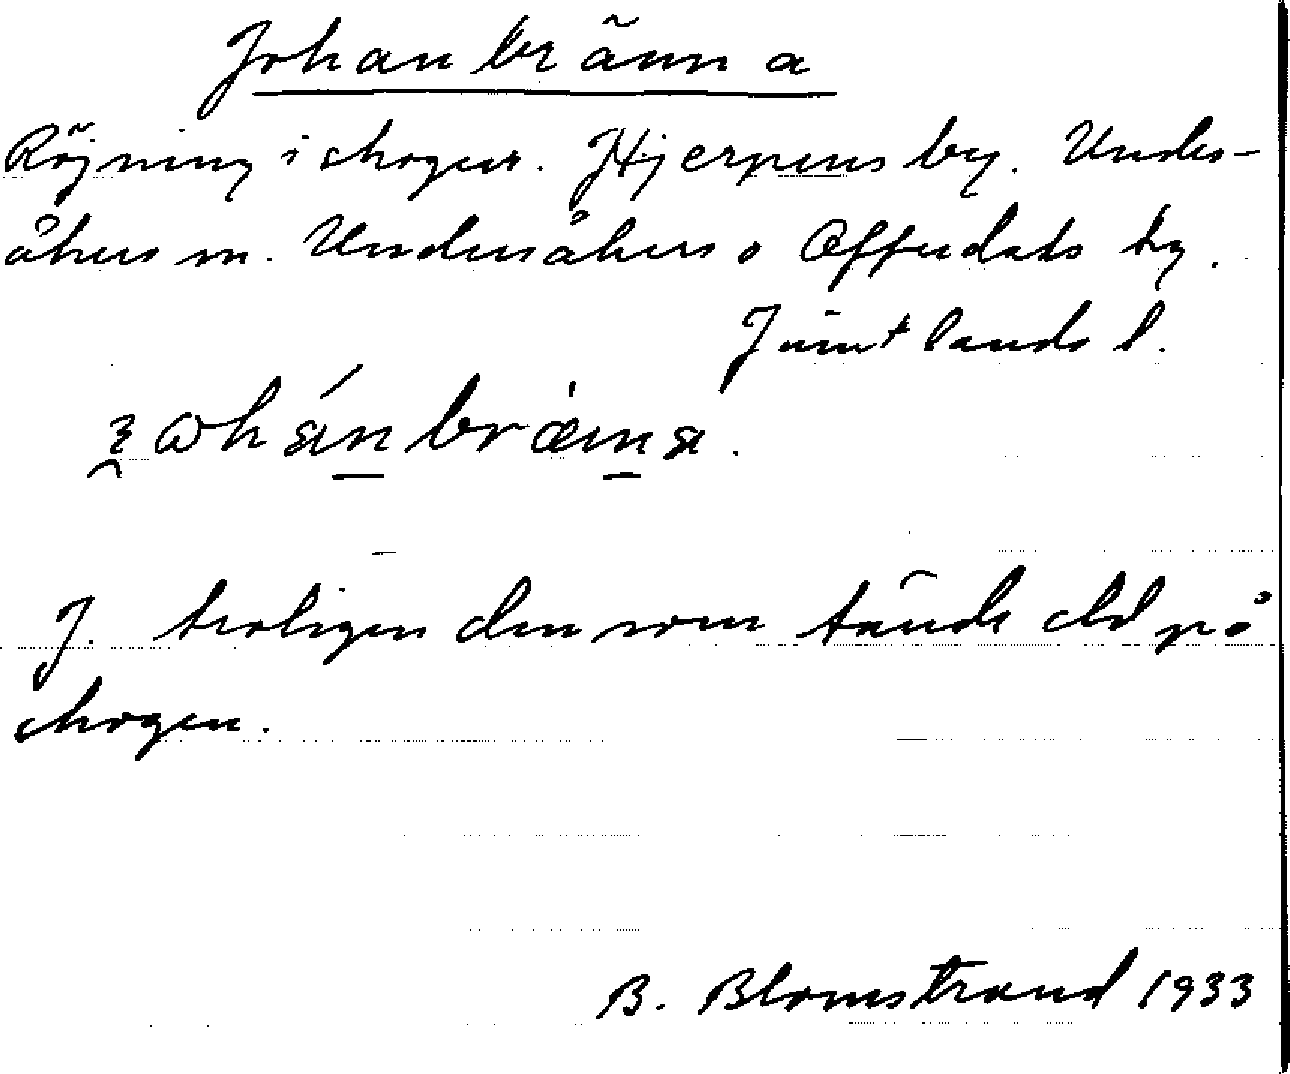 Johanbränna
Röjning i skogen. Hjerpens by. Unders-
åkers sn. Undersåkers o Offerdals tg.
Jämtlands l.
J. troligen den som tände eld på
skogen.
B. Blomstrand 1933